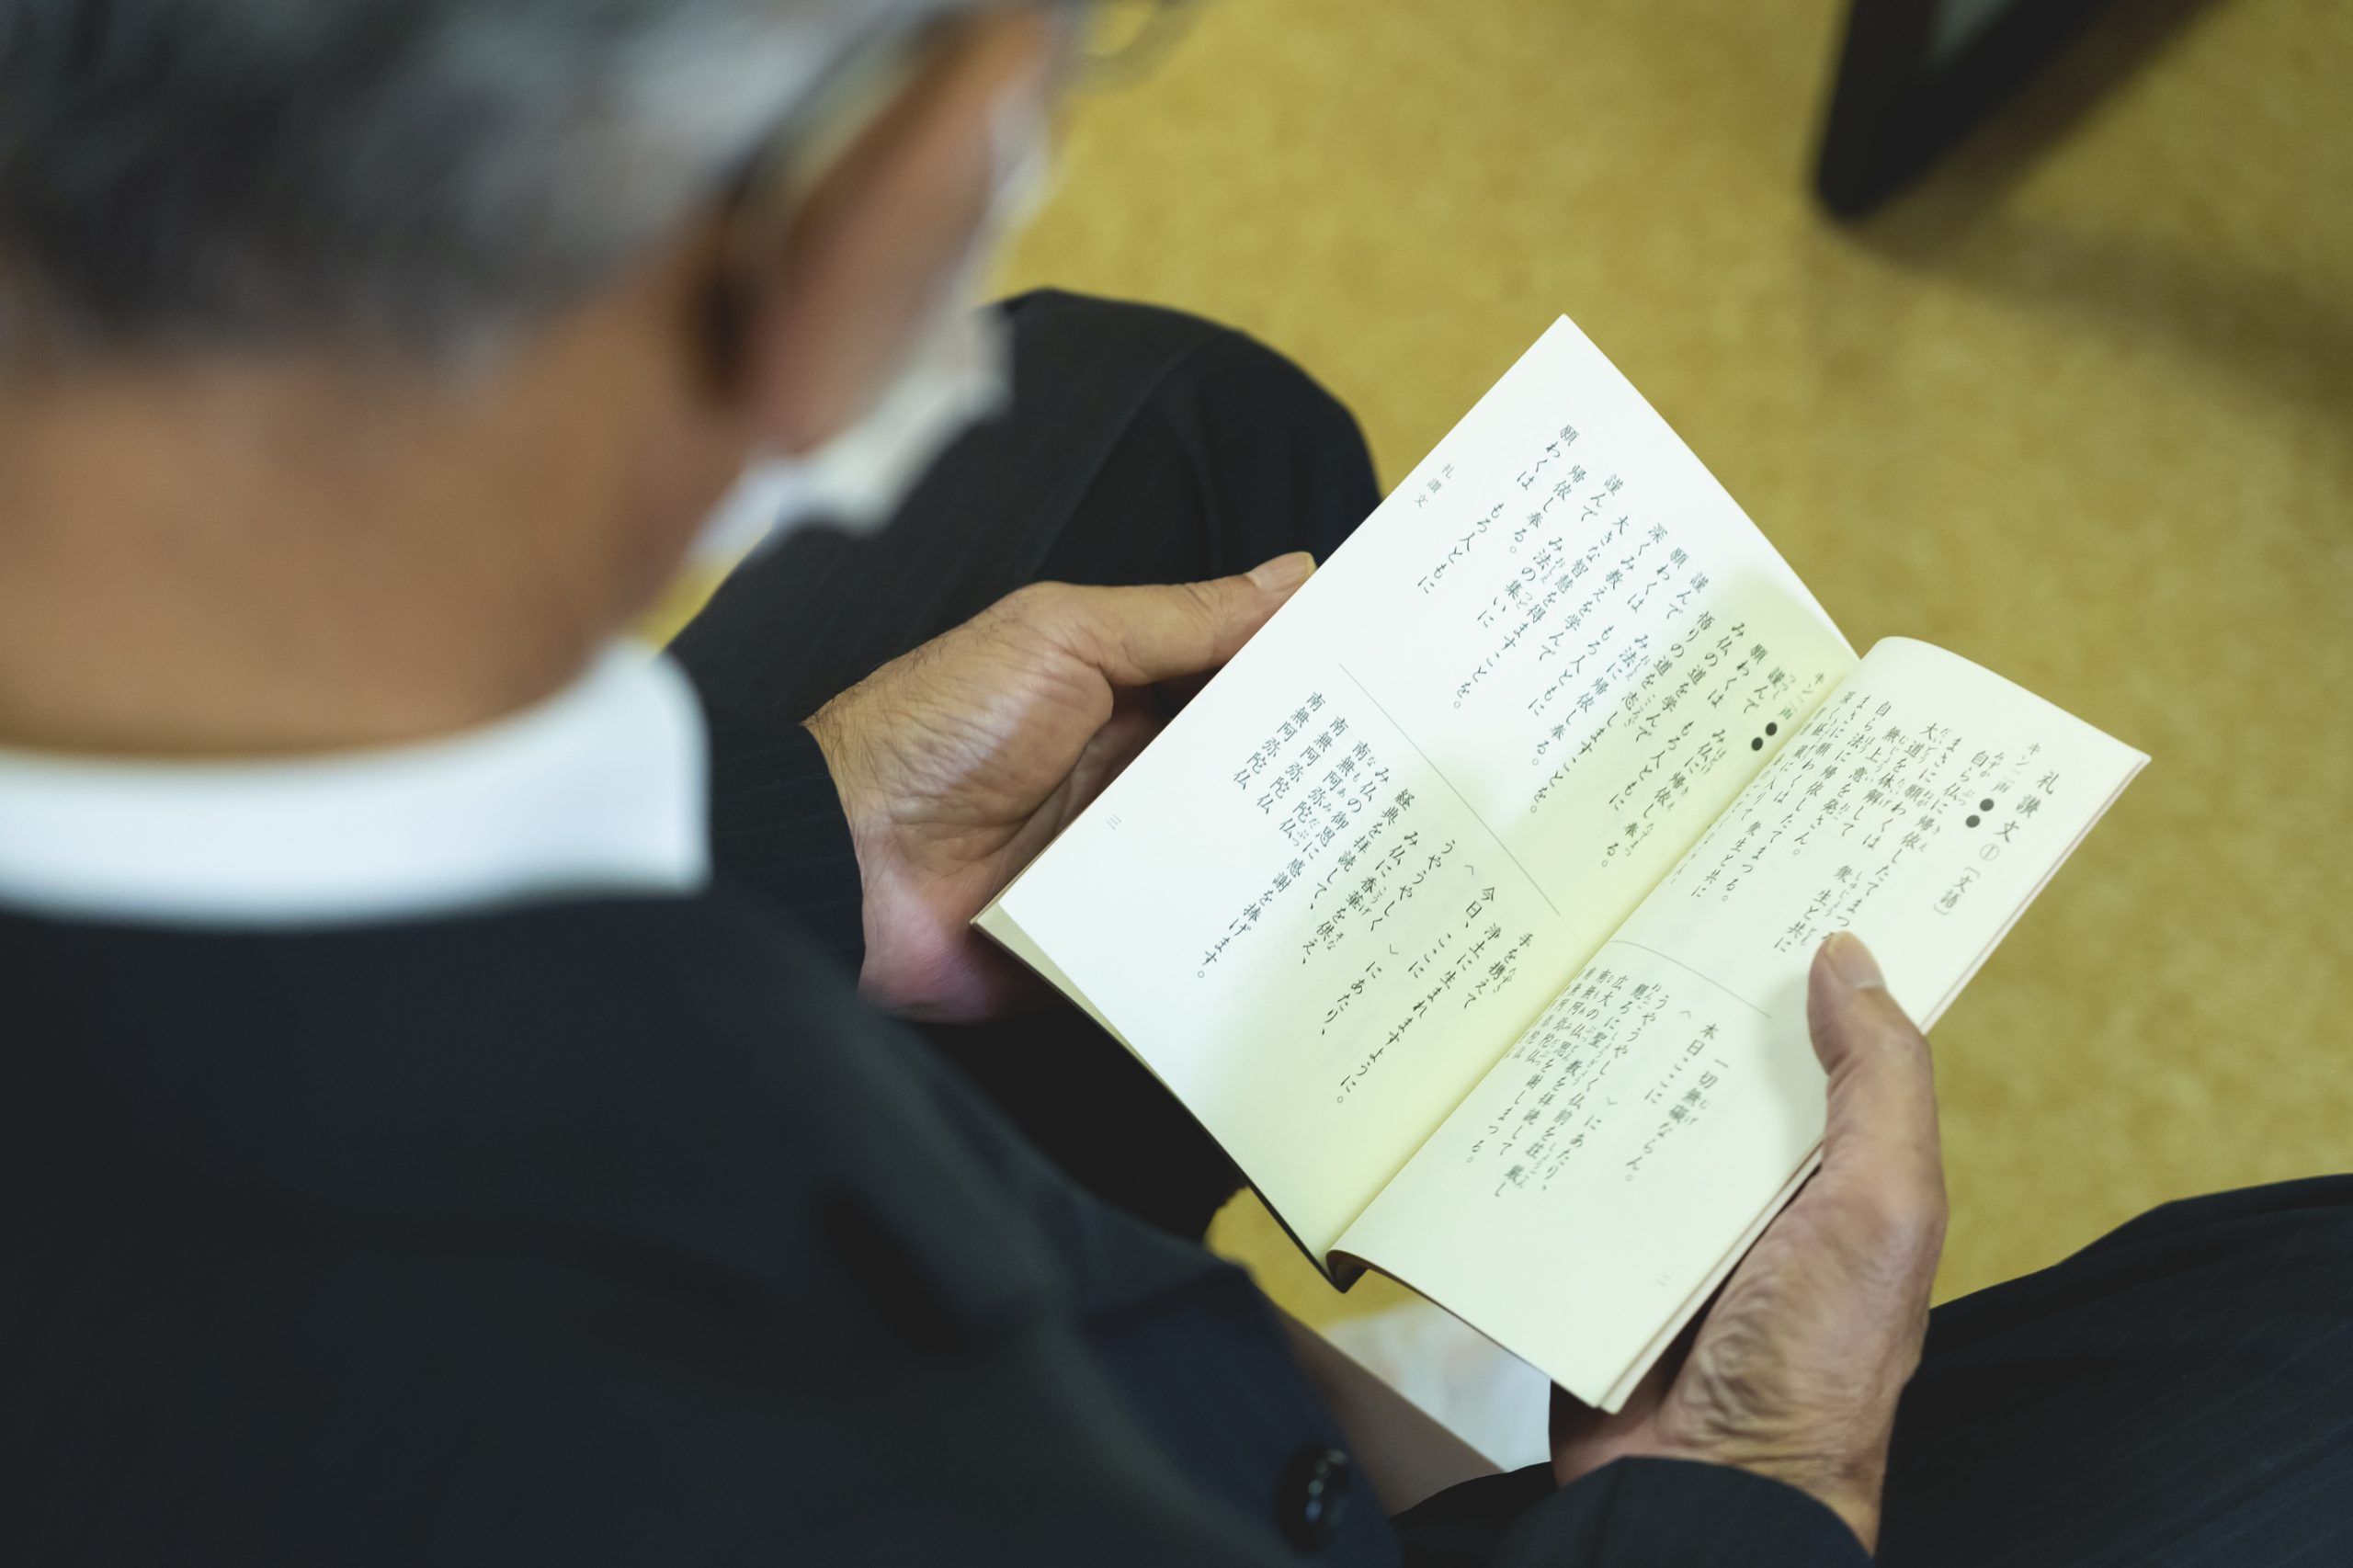 礼讃文①〔文語〕
キン二声●●
自ら仏に帰依したてまつる。
まさに願わくは 衆生と共に
大道を体解して
無上意を発さん。
自ら法に帰依したてまつる。
まさに願わくは 衆生と共に
一切無礙ならん。
本日ここに
〈 〉にあたり、
うやうやしく仏前を荘厳し
懇ろに聖教を拝読して
広大の仏恩を謝しまつる。
南無阿弥陀仏
二
キン二声●●
謹んで み仏に帰依し奉る。
願わくは もろ人とともに
み仏の道を学んで
悟りの道を志しますことを。
謹んで み法に帰依し奉る。
願わくは もろ人とともに
深くみ教えを学んで
大きな智慧を得ますことを。
謹んで み法の集いに
帰依し奉る。
願わくは もろ人とともに
手を携えて
浄土に生まれますように。
今日、ここに
〈 〉にあたり、
うやうやしく
み仏に香華を供え、
経典を拝読して、
み仏の御恩に感謝を捧げます。
南無阿弥陀仏
南無阿弥陀仏
南無阿弥陀仏
礼讃文
三